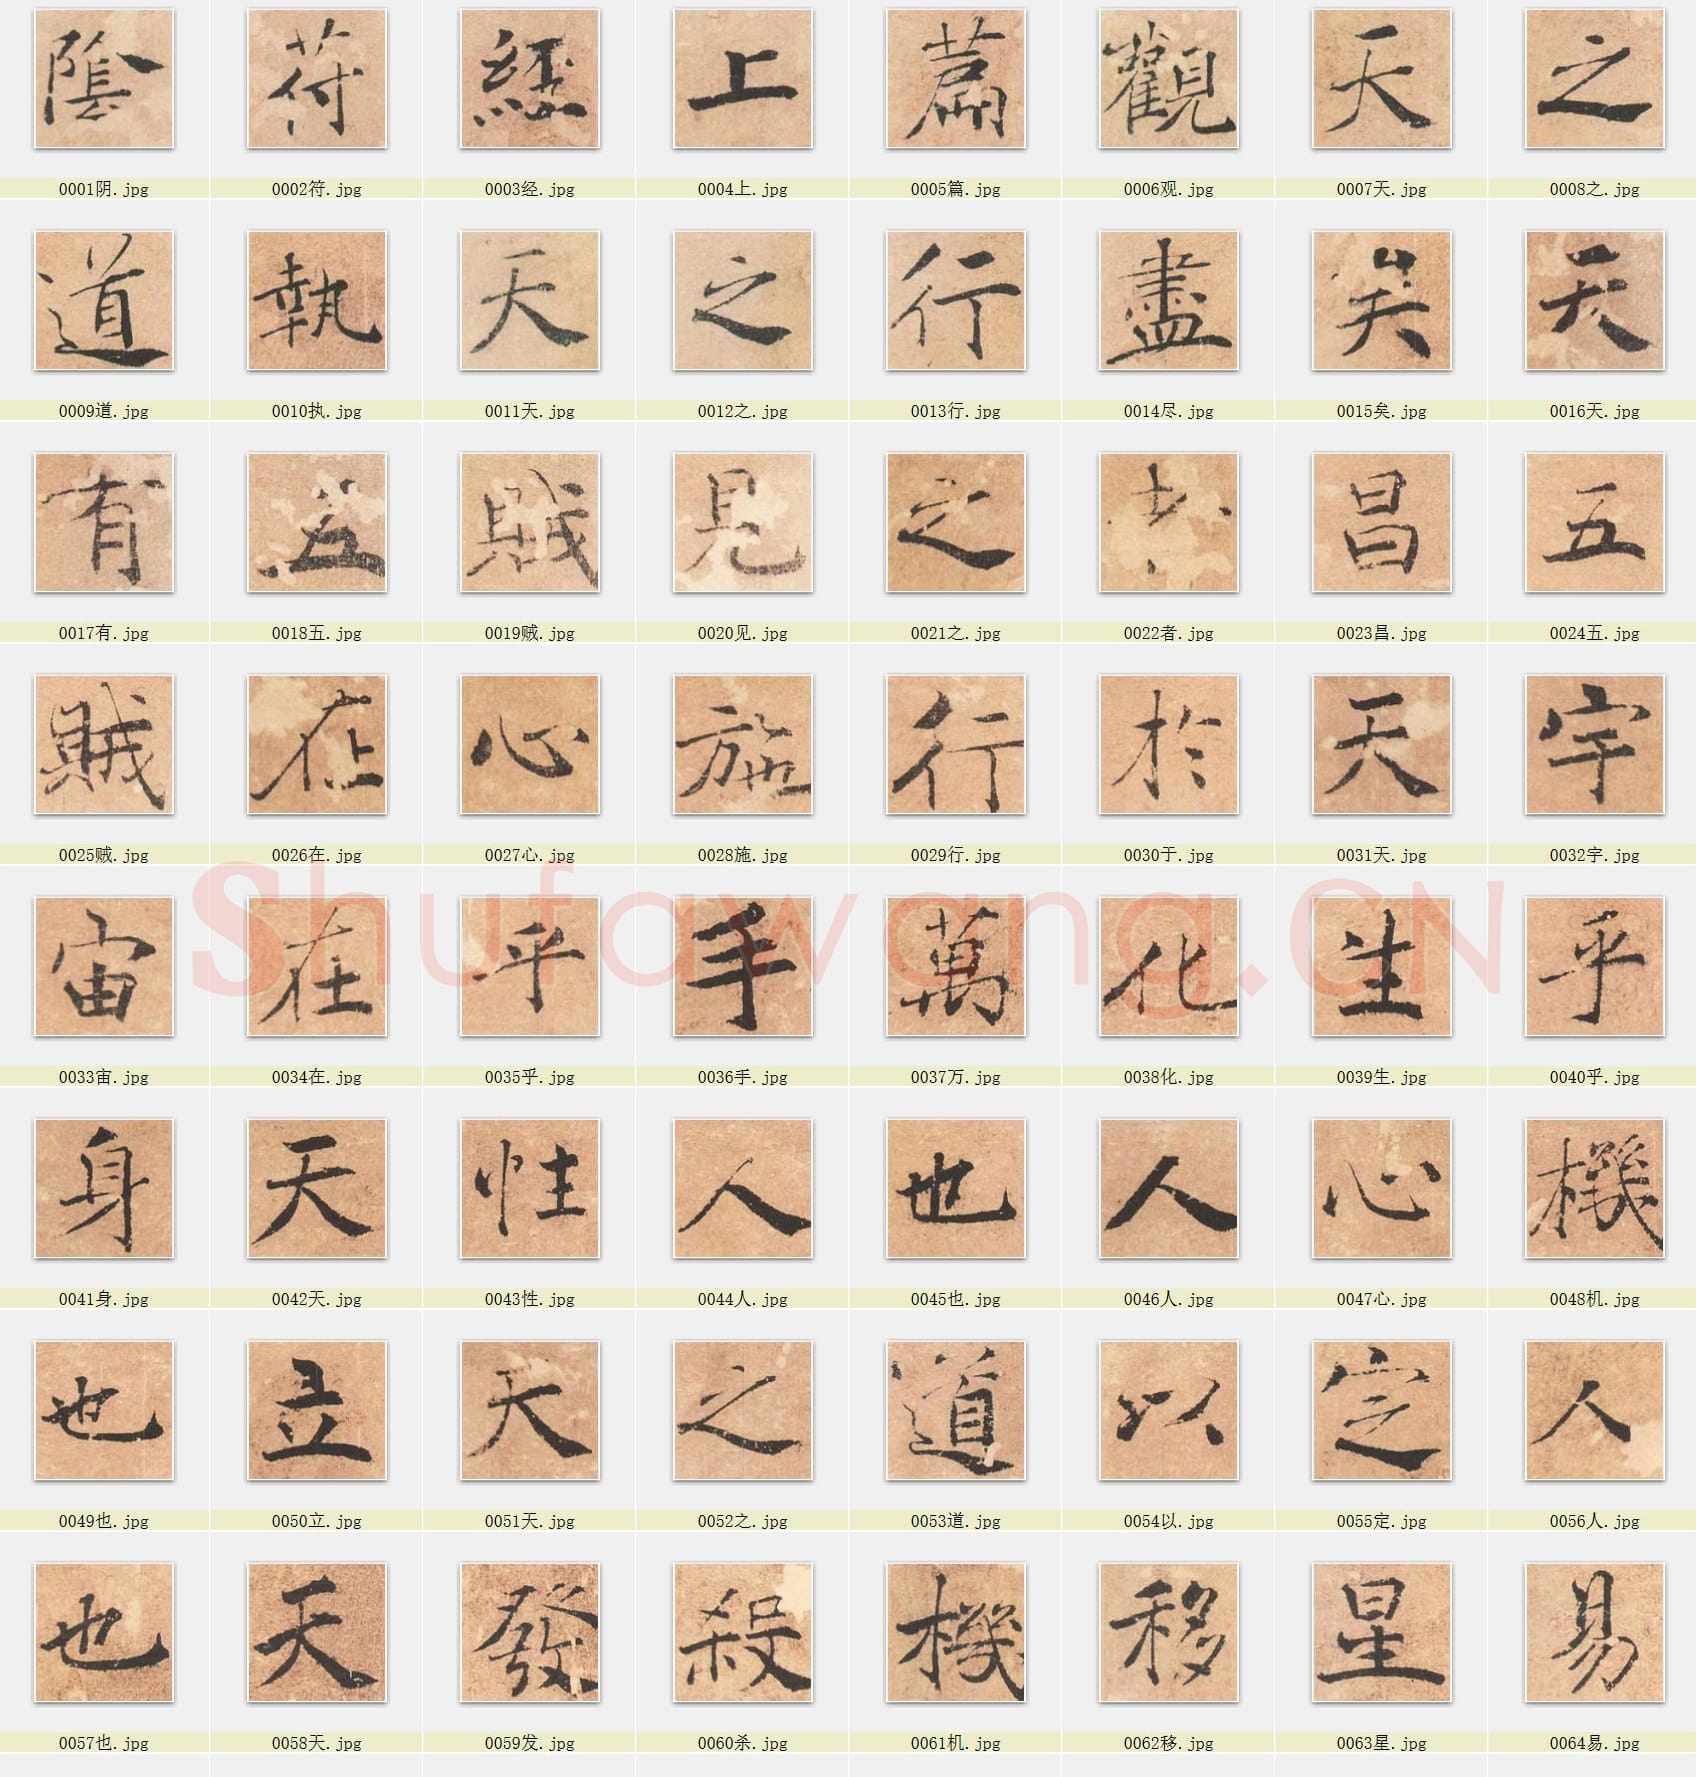 陰 符 經 上 萹 觀 天 之
0001阴.jpg 0002符.jpg 0003经.jpg 0004上.jpg 0005篇.jpg 0006观.jpg 0007天.jpg 0008之.jpg
道 執 天 之 行 盡 矣 天
0009道.jpg 0010执.jpg 0011天.jpg 0012之.jpg 0013行.jpg 0014尽.jpg 0015矣.jpg 0016天.jpg
有 五 賊 見 之 者 昌 五
0017有.jpg 0018五.jpg 0019贼.jpg 0020见.jpg 0021之.jpg 0022者.jpg 0023昌.jpg 0024五.jpg
賊 在 心 施 行 於 天 宇
0025贼.jpg 0026在.jpg 0027心.jpg 0028施.jpg 0029行.jpg 0030于.jpg 0031天.jpg 0032宇.jpg
Shufawang.CN
宙 在 乎 手 萬 化 生 乎
0033宙.jpg 0034在.jpg 0035乎.jpg 0036手.jpg 0037万.jpg 0038化.jpg 0039生.jpg 0040乎.jpg
身 天 性 人 也 人 心 機
0041身.jpg 0042天.jpg 0043性.jpg 0044人.jpg 0045也.jpg 0046人.jpg 0047心.jpg 0048机.jpg
也 立 天 之 道 以 定 人
0049也.jpg 0050立.jpg 0051天.jpg 0052之.jpg 0053道.jpg 0054以.jpg 0055定.jpg 0056人.jpg
也 天 發 殺 機 移 星 易
0057也.jpg 0058天.jpg 0059发.jpg 0060杀.jpg 0061机.jpg 0062移.jpg 0063星.jpg 0064易.jpg